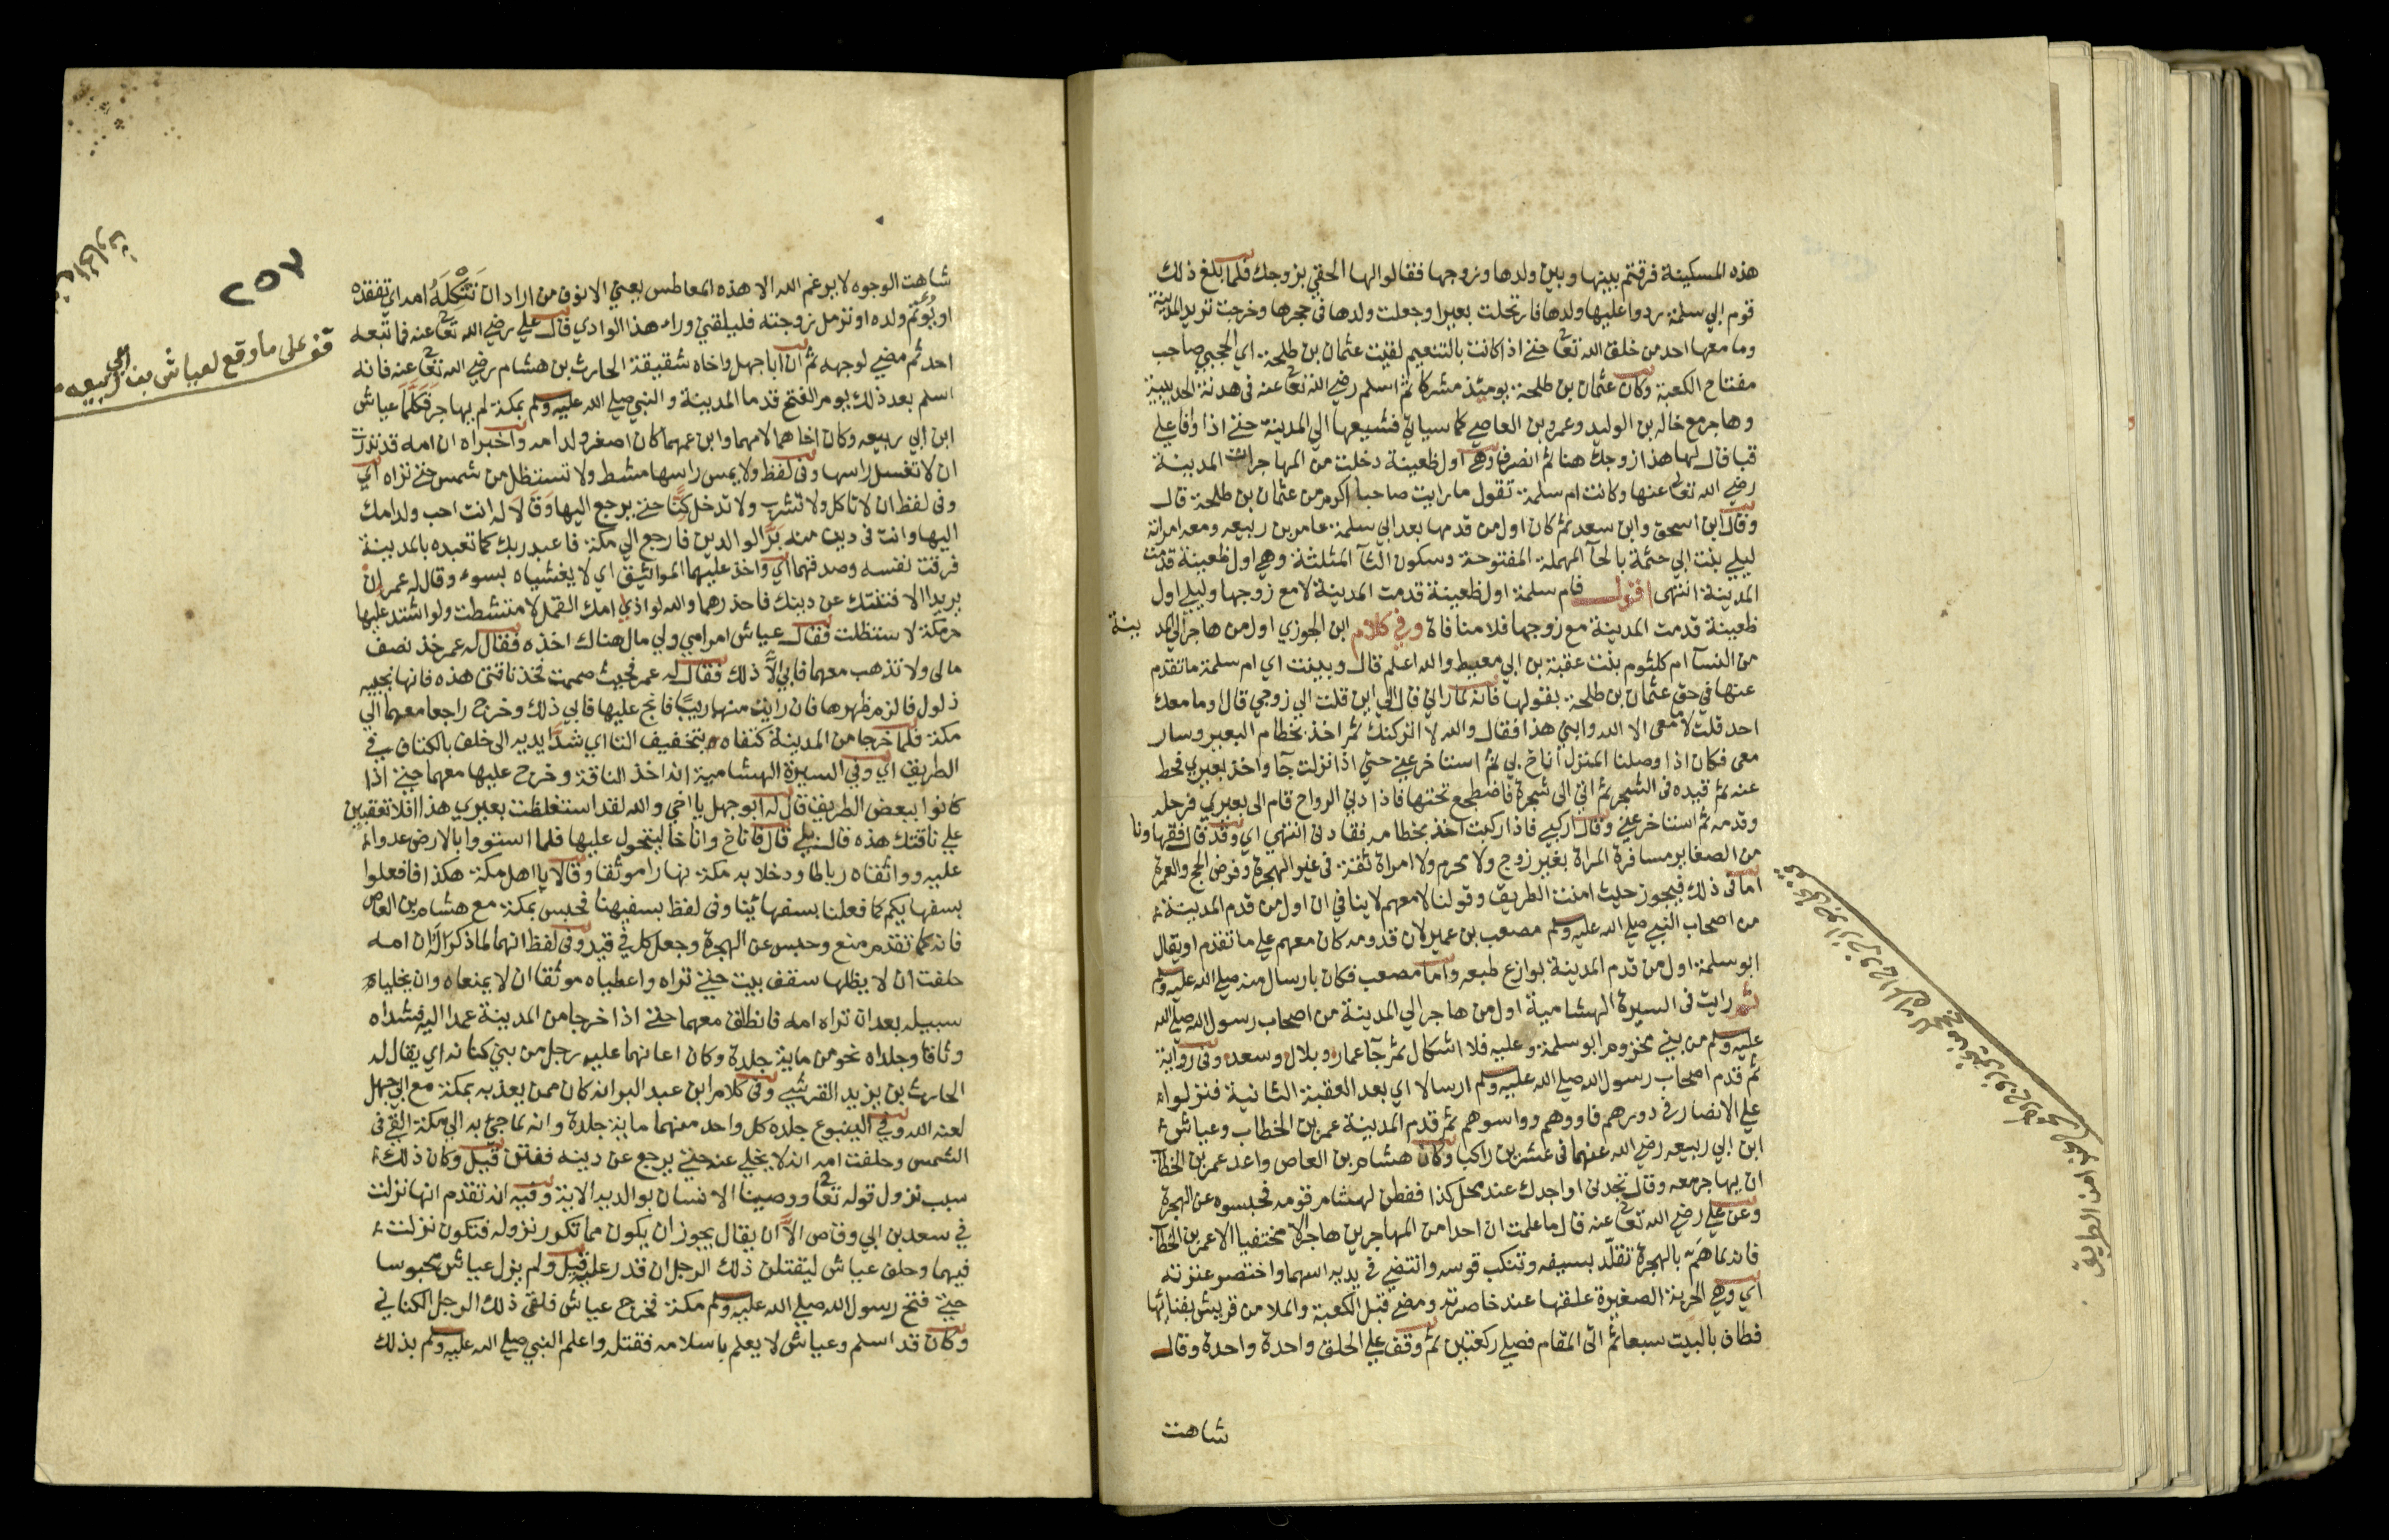 هذه المسكينة فرقتم بينها وبين ولدها وزوجها فقالوا لها الحقي بزوجك فلما بلغ ذلك
قوم ابي سلمة ردوا عليها ولدها فارتحلت بعيرا وجعلت ولدها في حجرها وخرجت تريد المدينة
وما معها احد من خلق الله تعالى حتى اذا كانت بالتنعيم لقيت عثمان بن طلحة اي الحجبي صاحب
مفتاح الكعبة وكان عثمان بن طلحة يومئذ مشركا ثم اسلم رضي الله تعالى عنه في هدنة الحديبية
وهاجر مع خالد بن الوليد وعمرو بن العاصي كما سياتي فشيعها الي المدينة حتى اذا وافا علي
قبا قال لها هذا زوجك هنا ثم انصرف وهي اول ظعينة دخلت من المهاجرات المدينة
رضي الله تعالى عنها وكانت ام سلمة تقول ما رايت صاحبا اكرم من عثمان بن طلحة قال
وقال ابن اسحق وابن سعد ثم كان اول من قدمها بعد ابي سلمة عامر بن ربيعه ومعه امراته
ليلي بنت ابي حثمة بالحآ المهملة المفتوحة وسكون الثآ المثلثة وهي اول ظعينة قدمت
المدينة انتهى اقول فام سلمة اول ظعينة قدمت المدينة لا مع زوجها وليلي اول
ظعينة قدمت المدينة مع زوجها فلا منافاة وفي كلام ابن الجوزي اول من هاجر الي المد ينة
من النسآ ام كلثوم بنت عقبة بن ابي معيط والله اعلم قال وبينت اي ام سلمة ما تقدم
عنها في حق عثمان بن طلحة بقولها فانه لما راني قال الي اين قلت الي زوجي قال وما معك
احد قلت لا معي الا الله وابني هذا فقال والله لا اتركنك ثم اخذ بخطام البعير وسار
معي فكان اذا وصلنا المنزل اناخ بي ثم استاخر عني حتي اذا نزلت جآ واخذ بعيري فحط
عنه ثم قيده في الشجر ثم اتي الى شجرة فاضطجع تحتها فاذا دني الرواح قام الى بعيري فرحله
وقدمه ثم استاخر عني وقال اركبي فاذا ركبت اخذ بخطامه فقادني انتهي اي وقد قال فقهاونا
من الصغاير مسافرة المراة بغير زوج ولا محرم ولا امراة ثقة في غير الهجرة وفرض الحج والعمرة
اما في ذلك فيجوز حيث امنت الطريق وقولنا لا معهم لا ينافي ان اول من قدم المدينة
من اصحاب النبي صلي الله عليه وسلم مصعب بن عمير لان قدومه كان معهم علي ما تقدم او يقال
ابو سلمة اول من قدم المدينة بوازع طبعه واما مصعب فكان بارسال منه صلي الله عليه وسلم
ثم رايت في السيرة الهشامية اول من هاجر الي المدينة من اصحاب رسول الله صلي الله
عليه وسلم من بني مخزوم ابو سلمة وعليه فلا اشكال ثم جآ عمار وبلال وسعد وفي رواية
ثم قدم اصحاب رسول الله صلي الله عليه وسلم ارسالا اي بعد العقبة الثانية فنزلوا
علي الانصار في دورهم فاووهم وواسوهم ثم قدم المدينة عمر بن الخطاب وعياش
ابن ابي ربيعه رضي الله عنهما في عشرين راكبا وكان هشام بن العاص واعد عمر بن الخطاب
ان يهاجر معه وقال تجدني او اجدك عند محل كذا ففطن لهشام قومه فحبسوه عن الهجرة
وعن علي رضي الله تعالى عنه قال ما علمت ان احدا من المهاجرين هاجر الا مختفيا الا عمر بن الخطاب
فانه لما هم بالهجرة تقلد بسيفه وتنكب قوسه وانتضي في يديه اسهما واختصر عنزته
اي وهي الحربة الصغيرة علقها عند خاصرته ومضي قبل الكعبة والملا من قريش بفنائها
فطاف بالبيت سبعا ثم اتى المقام فصلي ركعتين ثم وقف علي الحلق واحدة واحدة وقال
شاهت
امن الطريق
٢٥٧
قف على ما وقع لعياش بن ابي ربيعه
شاهت الوجوه لا يرغم الله الا هذه المعاطس يعني الانوف من اراد ان تثكله امه اي تفقده
او يؤتم ولده او ترمل زوجته فليلقني وراء هذا الوادي قال علي رضي الله تعالى عنه فما تبعه
احد ثم مضي لوجهه ثم ان ابا جهل واخاه شقيقة الحارث بن هشام رضي الله تعالى عنه فانه
اسلم بعد ذلك يوم الفتح قدما المدينة والنبي صلي الله عليه وسلم بمكة لم يهاجر فكلما عياش
ابن ابي ربيعه وكان اخاهما لامهما وابن عمهما كان اصغر ولد امه واخبراه ان امه قد نذرت
ان لا تغسل راسها وفي لفظ ولا يمس راسها مشط ولا تستظل من شمس حتى تراه اي
وفي لفظ ان لا تاكل ولا تشرب ولا تدخل كنا حتى يرجع اليها وقالا له انت احب ولد امك
اليها وانت في دين منه بر الوالدين فارجع الي مكة فاعبد ربك كما تعبده بالمدينة
فرقت نفسه وصدقهما اي واخذ عليهما المواثيق اي لا يغشياه بسوء وقال له عمر ان
يريدا الا فتنتك عن دينك فاحذرهما والله لو اذي امك القمل لامتشطت ولو اشتد عليها
حر مكة لاستظلت فقال عياش ابر امي ولي مال هناك اخذه فقال له عمر خذ نصف
مالي ولا تذهب معهما فابي الا ذلك فقال له عمر فحيث صممت فخذ ناقتي هذه فانها نجيبه
ذلول فالزم ظهرها فان رايت منها ريبا فانج عليها فابي ذلك وخرج راجعا معهما الي
مكة فلما خرجا من المدينة كتفاه بتخفيف التا اي شدا يديه الى خلف بالكتاف في
الطريق اي وفي السيرة الهشامية انه اخذ الناقة وخرج عليها معهما حتى اذا
كانوا ببعض الطريق قال له ابو جهل يا اخي والله لقد استغلظت بعيري هذا افلا تعقبني
علي ناقتك هذه قال بلي قال فاناخ واناخا ليتحول عليها فلما استووا بالارض عدوا
عليه وواثقاه رباطا ودخلا به مكة نهارا موثقا وقالا يا اهل مكة هكذا فافعلوا
بسفهايكم كما فعلنا بسفهائينا وفي لفظ بسفيهنا فحبس بمكة مع هشام بن العاص
فانه كما تقدم منع وحبس عن الهجرة وجعل كل في قيد وفي لفظ انهما لما ذكرا له ان امه
حلفت ان لا يظلها سقف بيت حتى تراه واعطياه موثقا ان لا يمنعاه وان يخليا
سبيله بعد ان تراه امه فانطلق معهما حتى اذا خرجا من المدينة عمدا اليه فشداه
وثاقا وجلداه نحو من ماية جلدة وكان اعانهما عليه رجل من بني كنانه اي يقال له
الحارث بن يزيد القرشي وفي كلام ابن عبد البر انه كان ممن يعذبه بمكة مع ابي جهل
لعنه الله وفي الينبوع جلده كل واحد منهما ماية جلدة وانه لما جيء به الي مكة القي في
الشمس وحلفت امه انه لا يخلي عنه حتى يرجع عن دينه ففتن قيل وكان ذلك
سبب نزول قوله تعالى ووصينا الانسان بوالديه الاية وفيه انه تقدم انها نزلت
في سعد بن ابي وقاص الا ان يقال يجوز ان يكون مما تكرر نزوله فتكون نزلت
فيهما وحلف عياش ليقتلن ذلك الرجل ان قدر عليه قيل ولم يزل عياش محبوسا
حتى فتح رسول الله صلي الله عليه وسلم مكة فخرج عياش فلقي ذلك الرجل الكناني
وكان قد اسلم وعياش لا يعلم باسلامه فقتله واعلم النبي صلي الله عليه وسلم بذلك